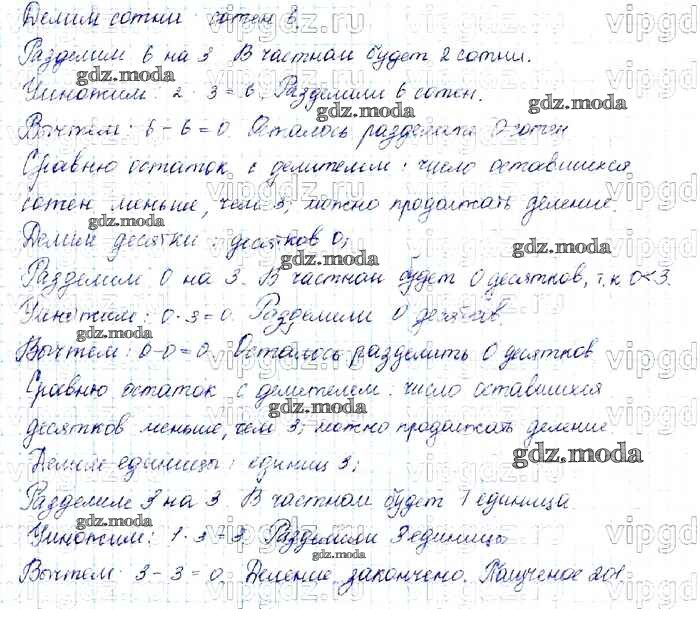 Делим сотни: сотен 6.
Разделим 6 на 3. В частном будет 2 сотни.
gdz.moda
Умножим: 2 · 3 = 6. Разделили 6 сотен.
gdz.moda
Вычтем: 6 – 6 = 0. Осталось разделить 0 сотен
gdz.moda
Сравню остаток с делителем: число оставшихся
сотен меньше, чем 3; можно продолжать деление.
gdz.moda
Делим десятки: десятков 0;
gdz.moda gdz.moda
Разделим 0 на 3. В частном будет 0 десятков, т.к 0<3.
Умножим: 0 · 3 = 0. Разделили 0 десятков.
gdz.moda gdz.moda
Вычтем: 0–0=0. Осталось разделить 0 десятков
Сравню остаток с делителем: число оставшихся
gdz.moda
десятков меньше, чем 3; можно продолжать деление
Делим единицы: единиц 3;
gdz.moda gdz.moda
Разделим 3 на 3. В частном будет 1 единица
gdz.moda
Умножим: 1 · 3 = 3. Разделили 3 единицы
gdz.moda
Вычтем: 3 – 3 = 0. Деление закончено. Полученое 201.
gdz.moda
vipgdz.ru